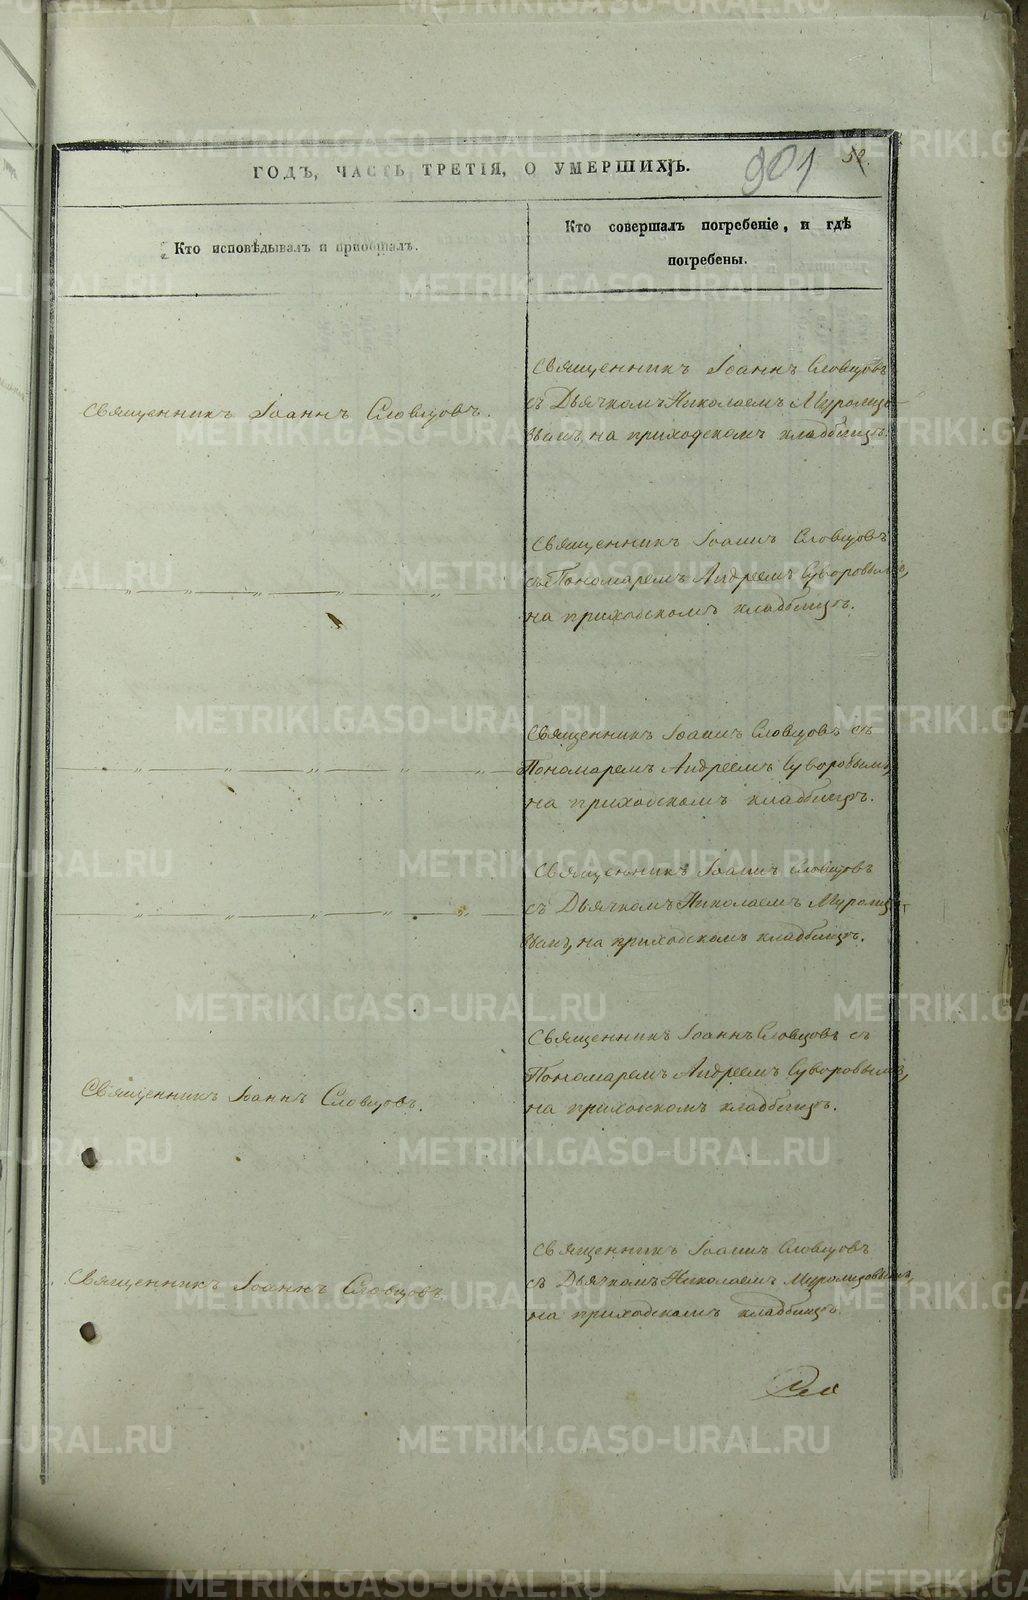 ГОДЪ, ЧАСТЬ ТРЕТІЯ, О УМЕРШИХЪ.
901
52.
Кто исповѣдывалъ и пріобщалъ.
Кто совершалъ погребеніе, и гдѣ
погребены.
Священникъ Іоаннъ Словцовъ.
Священникъ Іоаннъ Словцовъ
съ Дьячкомъ Николаемъ Муромцо-
вымъ, на приходскомъ кладбищѣ.
— „ — „ — „ — „ —
Священникъ Іоаннъ Словцовъ
съ Пономаремъ Андреемъ Суворовымъ,
на приходскомъ кладбищѣ.
— „ — „ — „ — „ —
Священникъ Іоаннъ Словцовъ съ
Пономаремъ Андреемъ Суворовымъ,
на приходскомъ кладбищѣ.
— „ — „ — „ — „ —
Священникъ Іоаннъ Словцовъ
съ Дьячкомъ Николаемъ Муромцо-
вымъ, на приходскомъ кладбищѣ.
Священникъ Іоаннъ Словцовъ.
Священникъ Іоаннъ Словцовъ съ
Пономаремъ Андреемъ Суворовымъ,
на приходскомъ кладбищѣ.
Священникъ Іоаннъ Словцовъ.
Священникъ Іоаннъ Словцовъ
съ Дьячкомъ Николаемъ Муромцовымъ,
на приходскомъ кладбищѣ.
METRIKI.GASO-URAL.RU